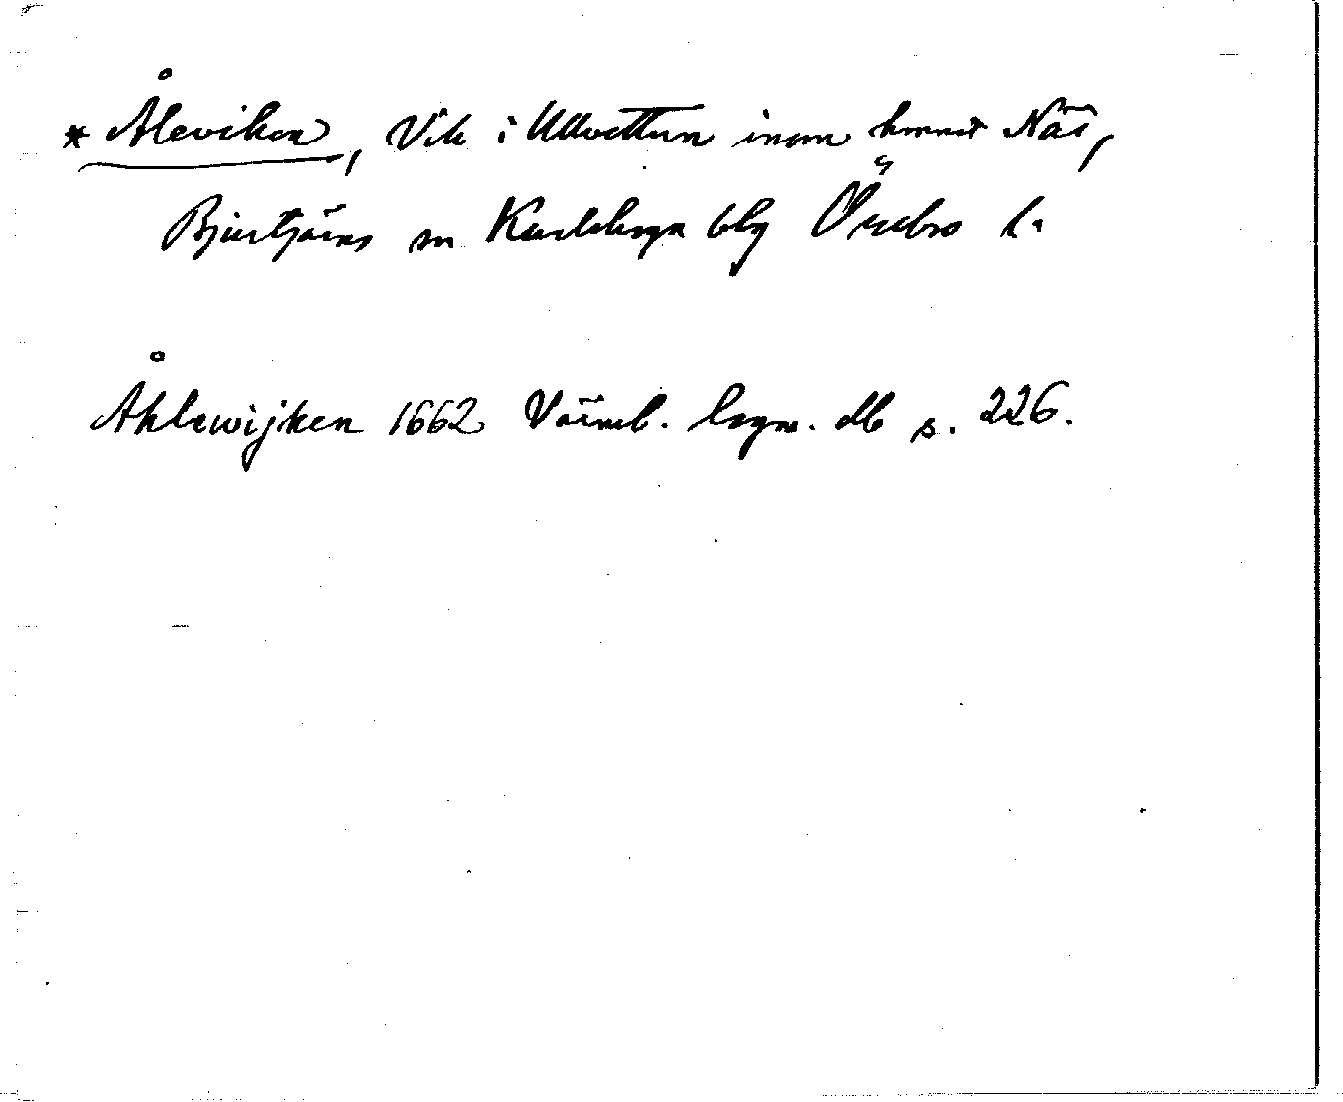 * Åleviken, Vik i Ullvettern inom hemmet Näs,
Bjurtjärns sn Karlskoga blg Örebro l.
Åhlewijken 1662 Värml. lagm. db s. 226.